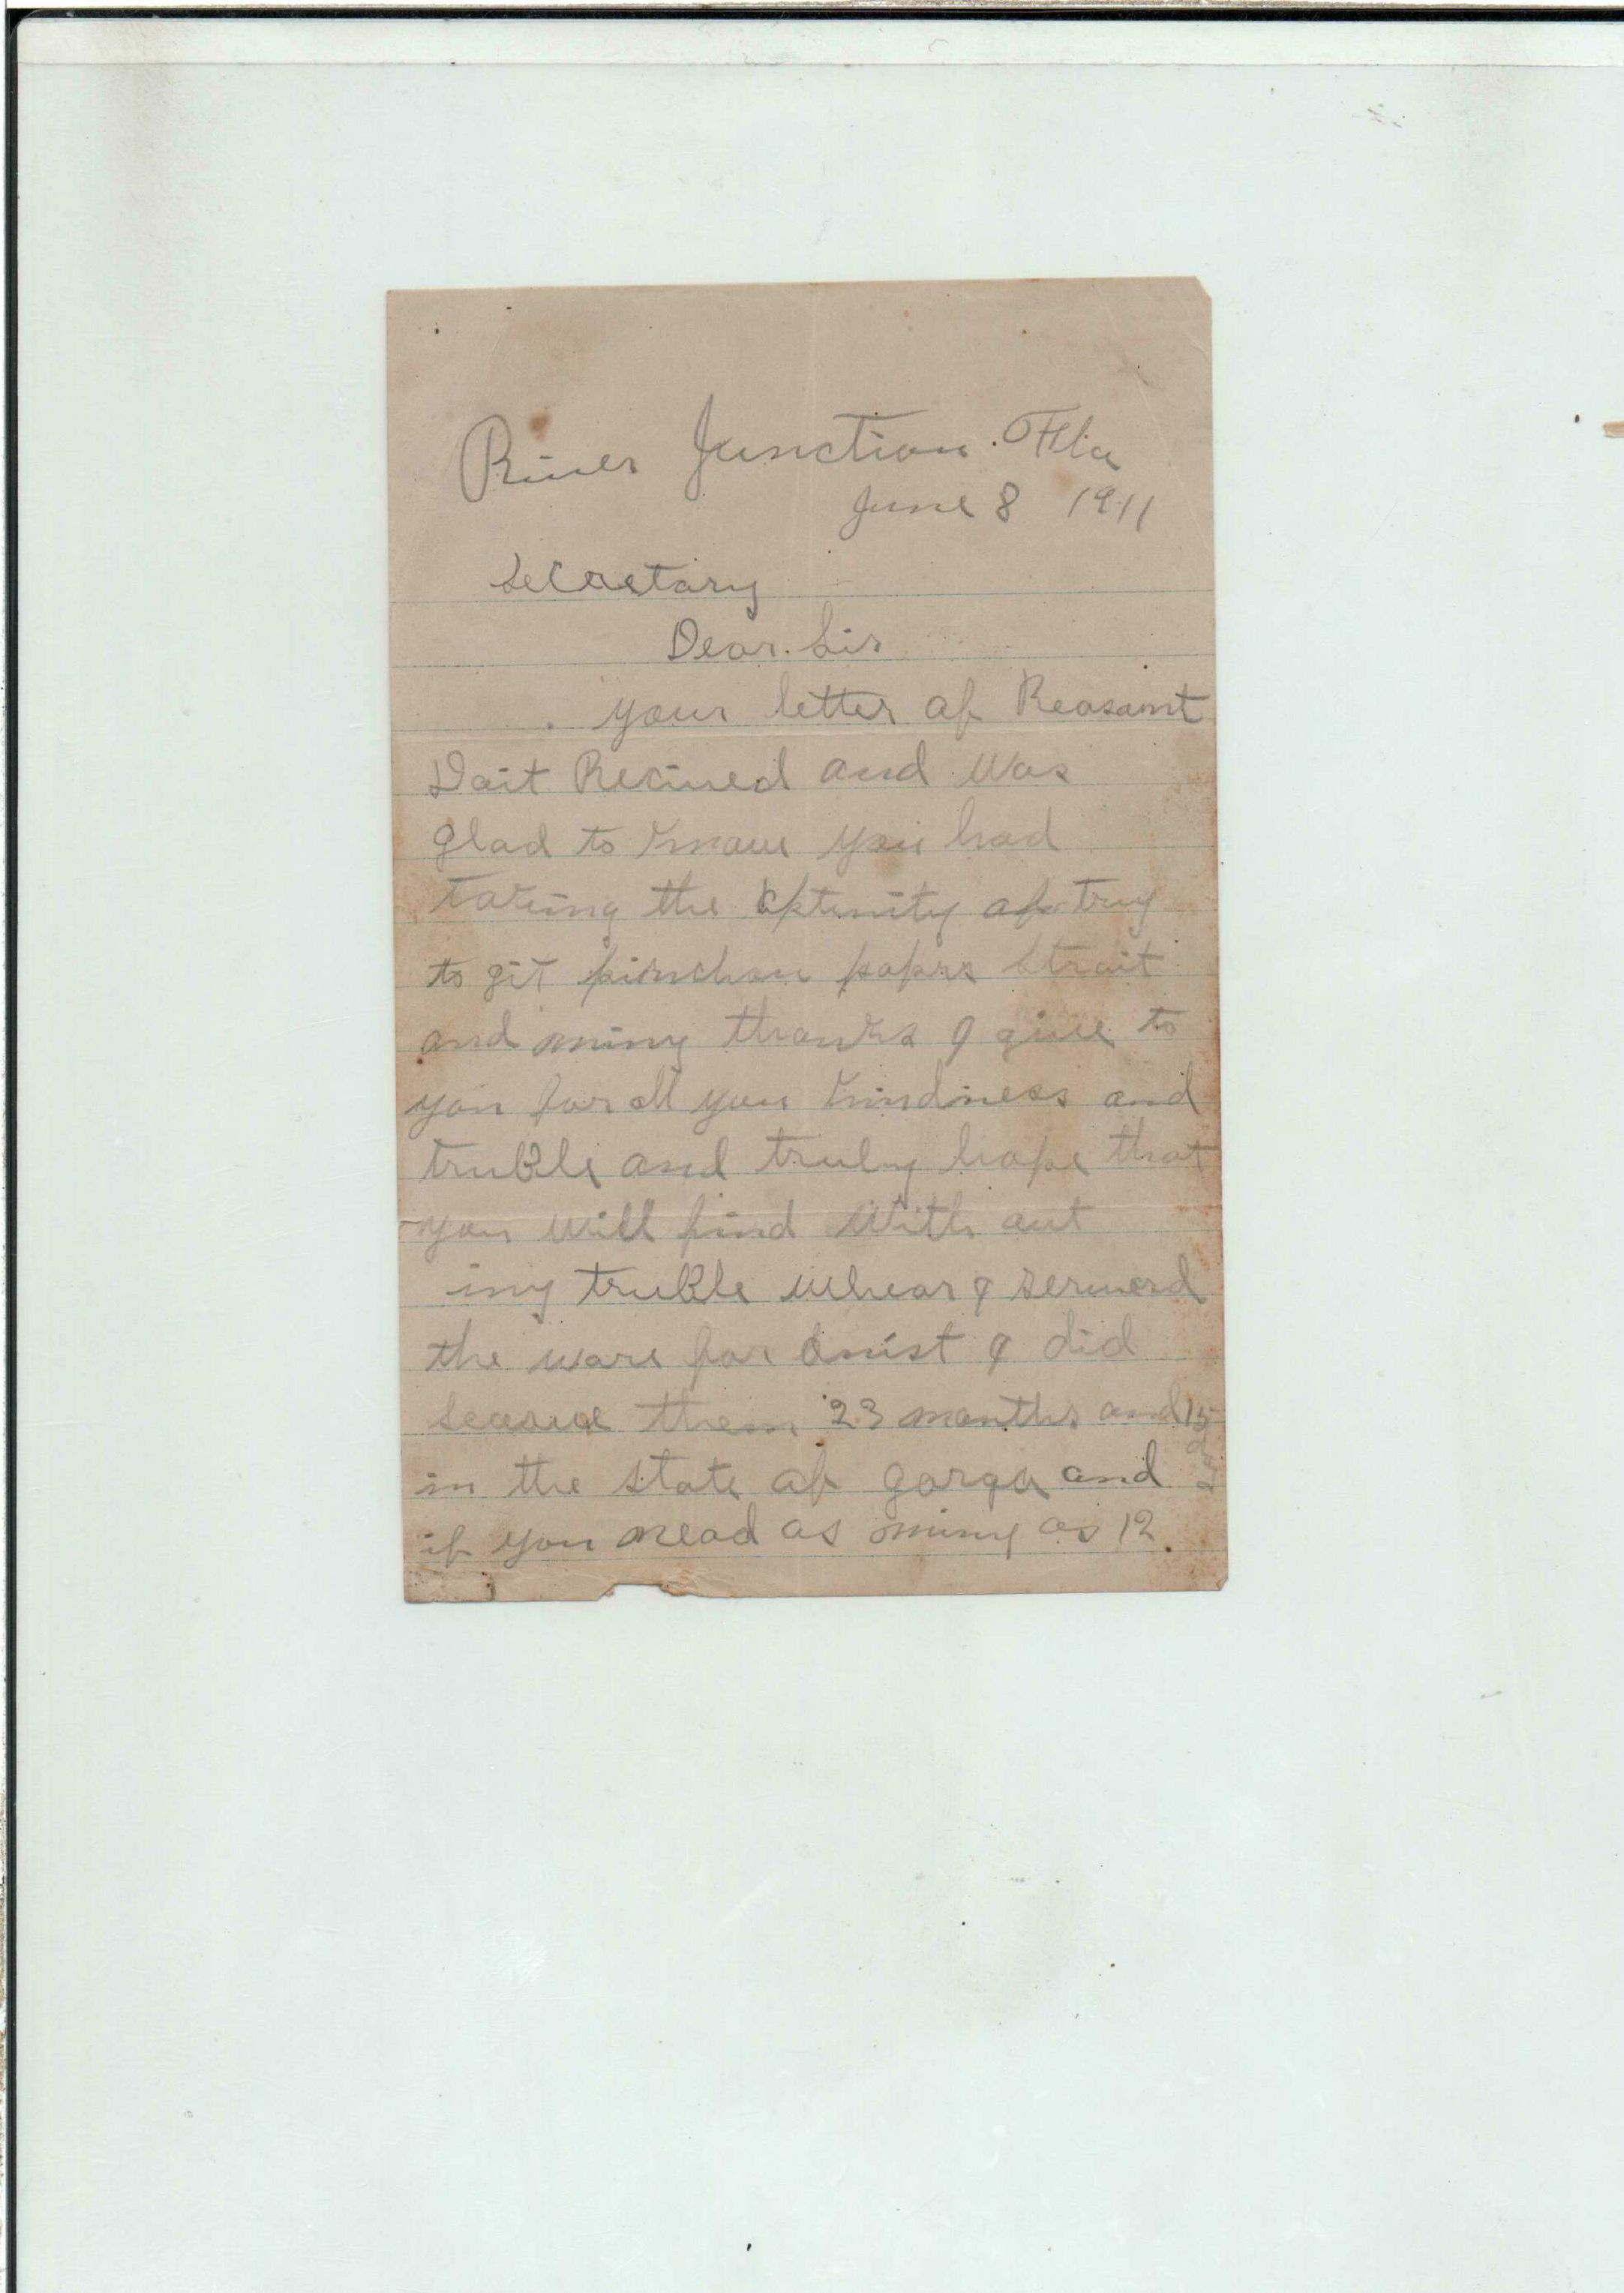 River Junction. Fla
June 8 1911
Secretary
Dear. Sir
. your letter of Reasant
Dait Recived and Was
glad to know you had
taking the optunity of try
to git pinchon paprs Strait
and miny thanks I give to
you for all your kindness and
truble and truly hope that
you will find With out
iny truble whear I served
the ware for I did
them 23 months and 15
days
in the state of gorga and
if you nead as miny as 12.